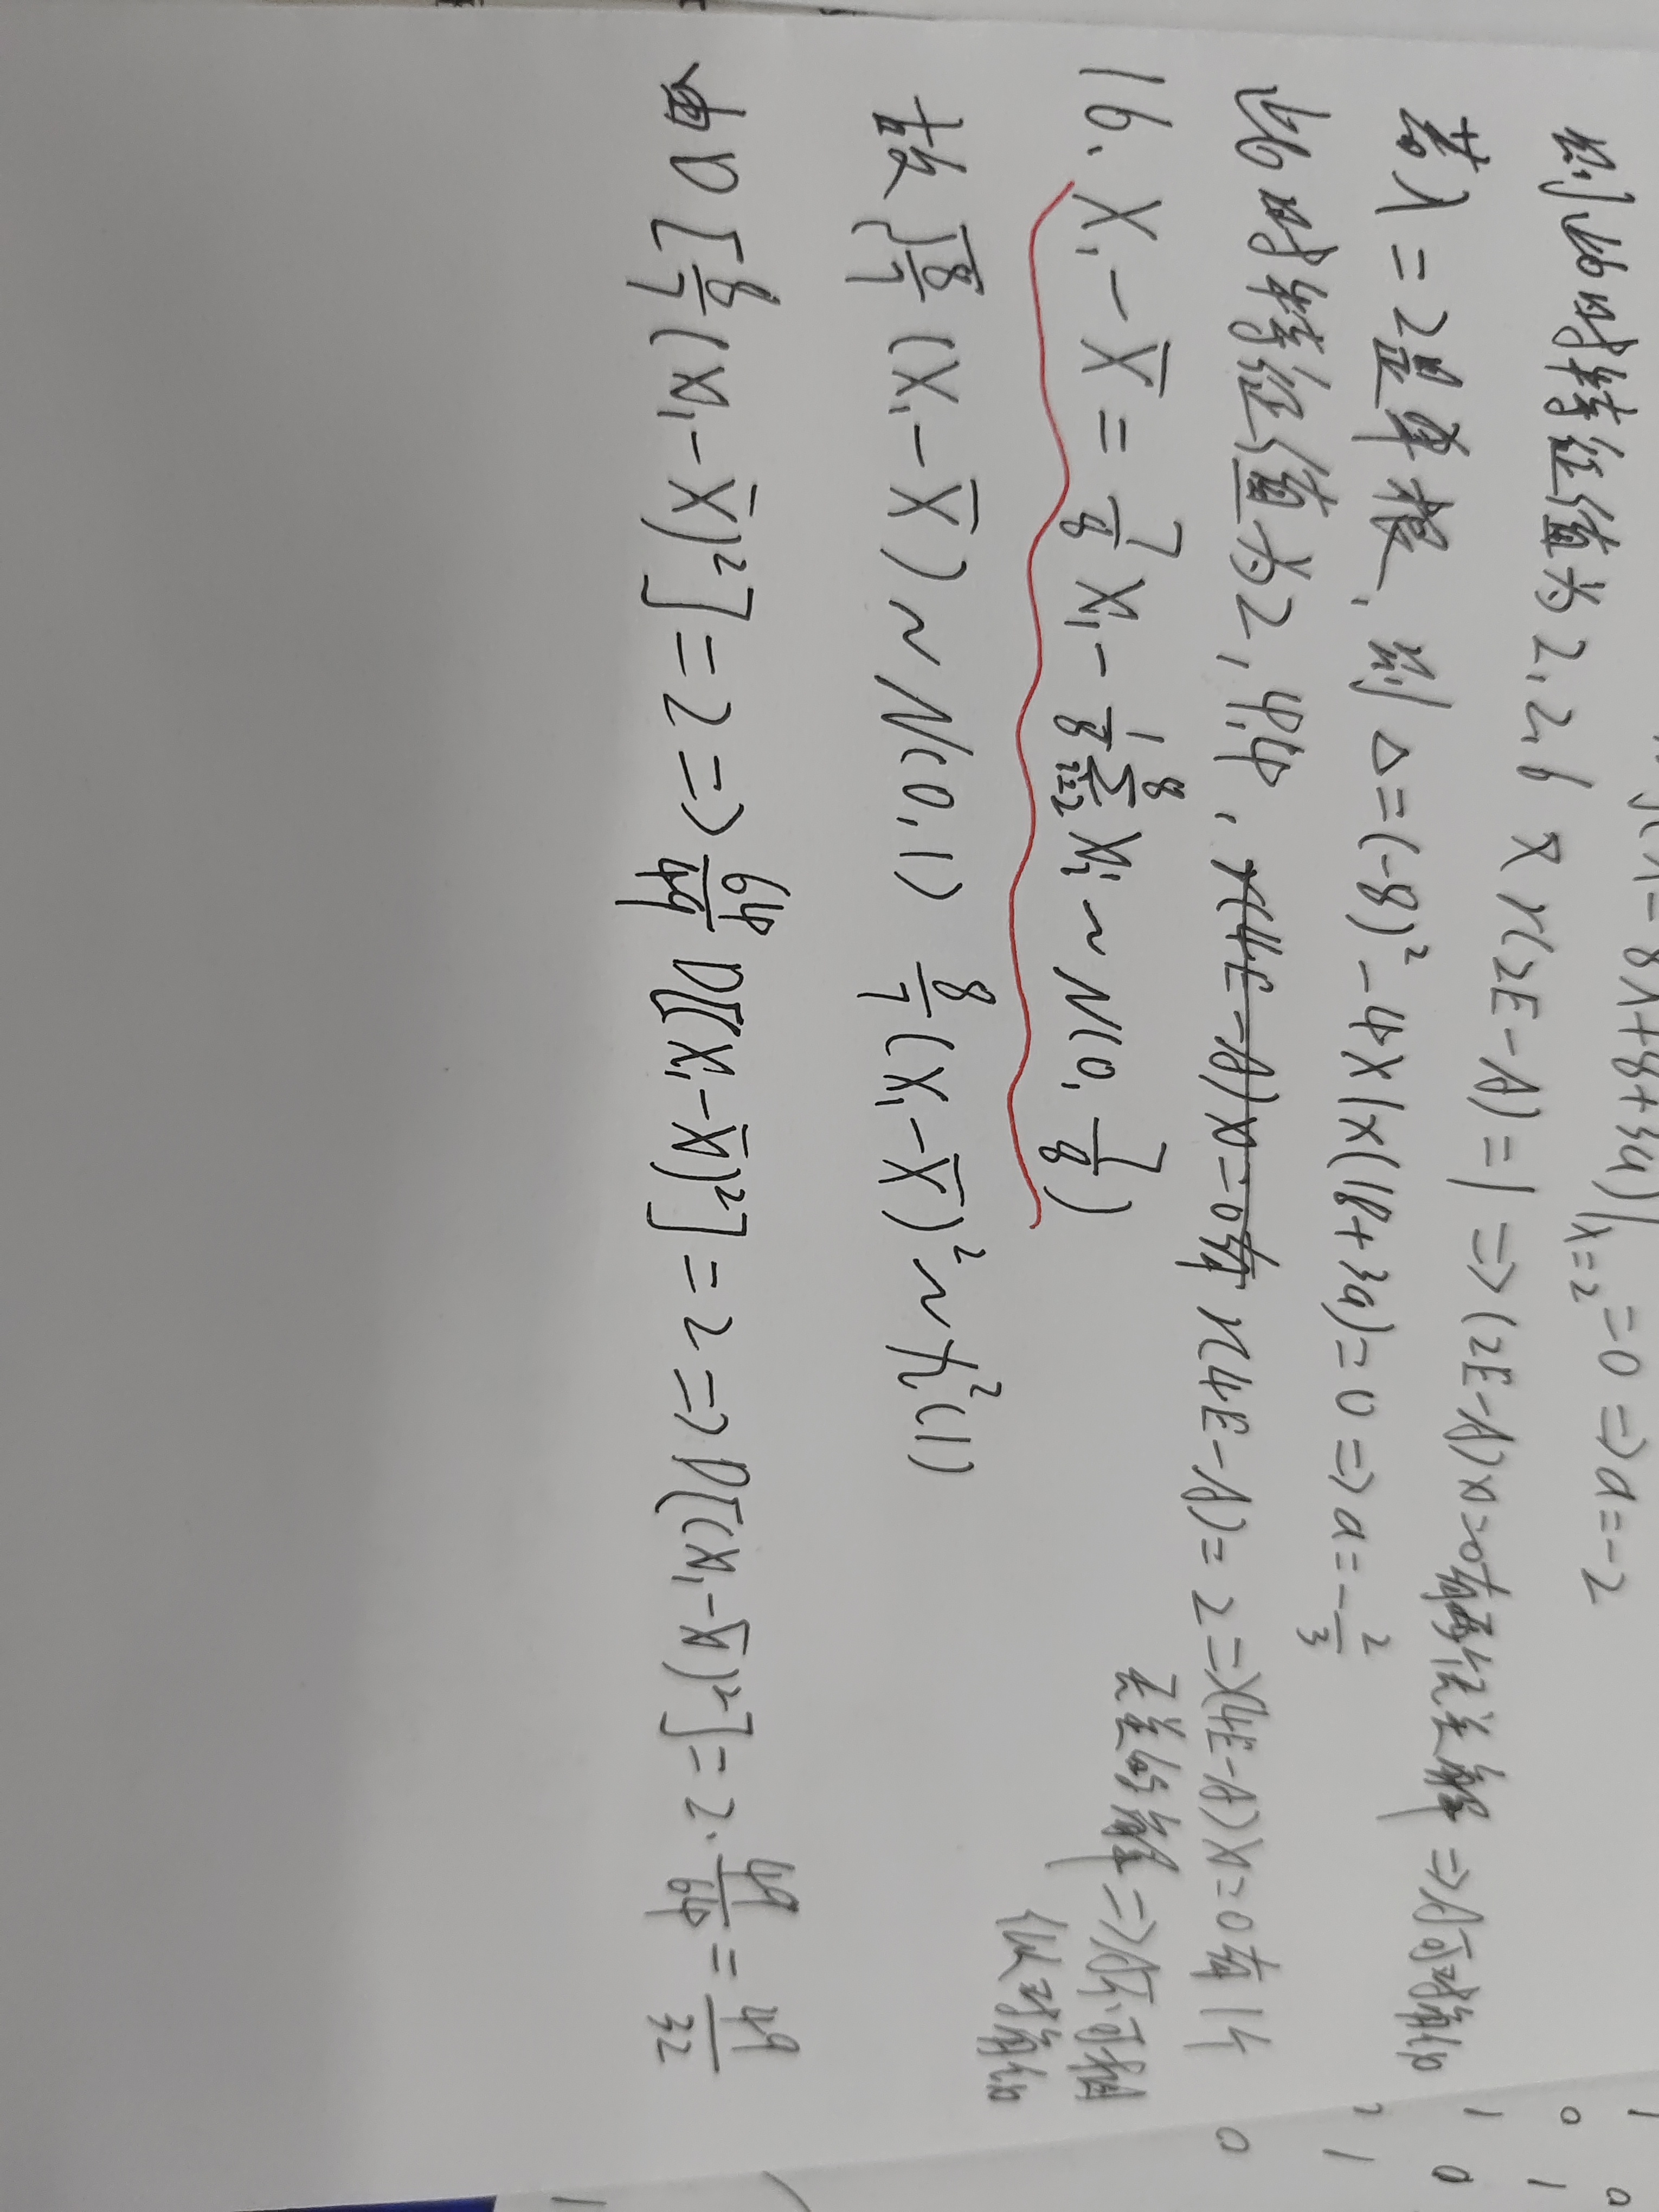 λ - 8λ+18+3a)|λ=2 =0 ⇒ a=-2
则此时特征值为2,2,6 又 r(2E-A)=1 ⇒ (2E-A)x=0有两个线无解 ⇒ A可对角化
若λ=2是单根,则 △=(-8)²-4×1×(18+3a)=0 ⇒ a=-2/3
此时特征值为2,4,4, r(4E-A)=2 ⇒ (4E-A)x=0有1个
无关的解 ⇒ A不可相
似对角化
16. X₁-X̄ = 7/8 X₁ - 1/8 ∑_{i=2}^{8} Xᵢ ~ N(0, 7/8)
故 √(8/7) (X₁-X̄) ~ N(0,1) 8/7 (X₁-X̄)² ~ χ²(1)
由 D[8/7 (X₁-X̄)²] = 2 ⇒ 64/49 D[(X₁-X̄)²] = 2 ⇒ D[(X₁-X̄)²] = 2·49/64 = 49/32